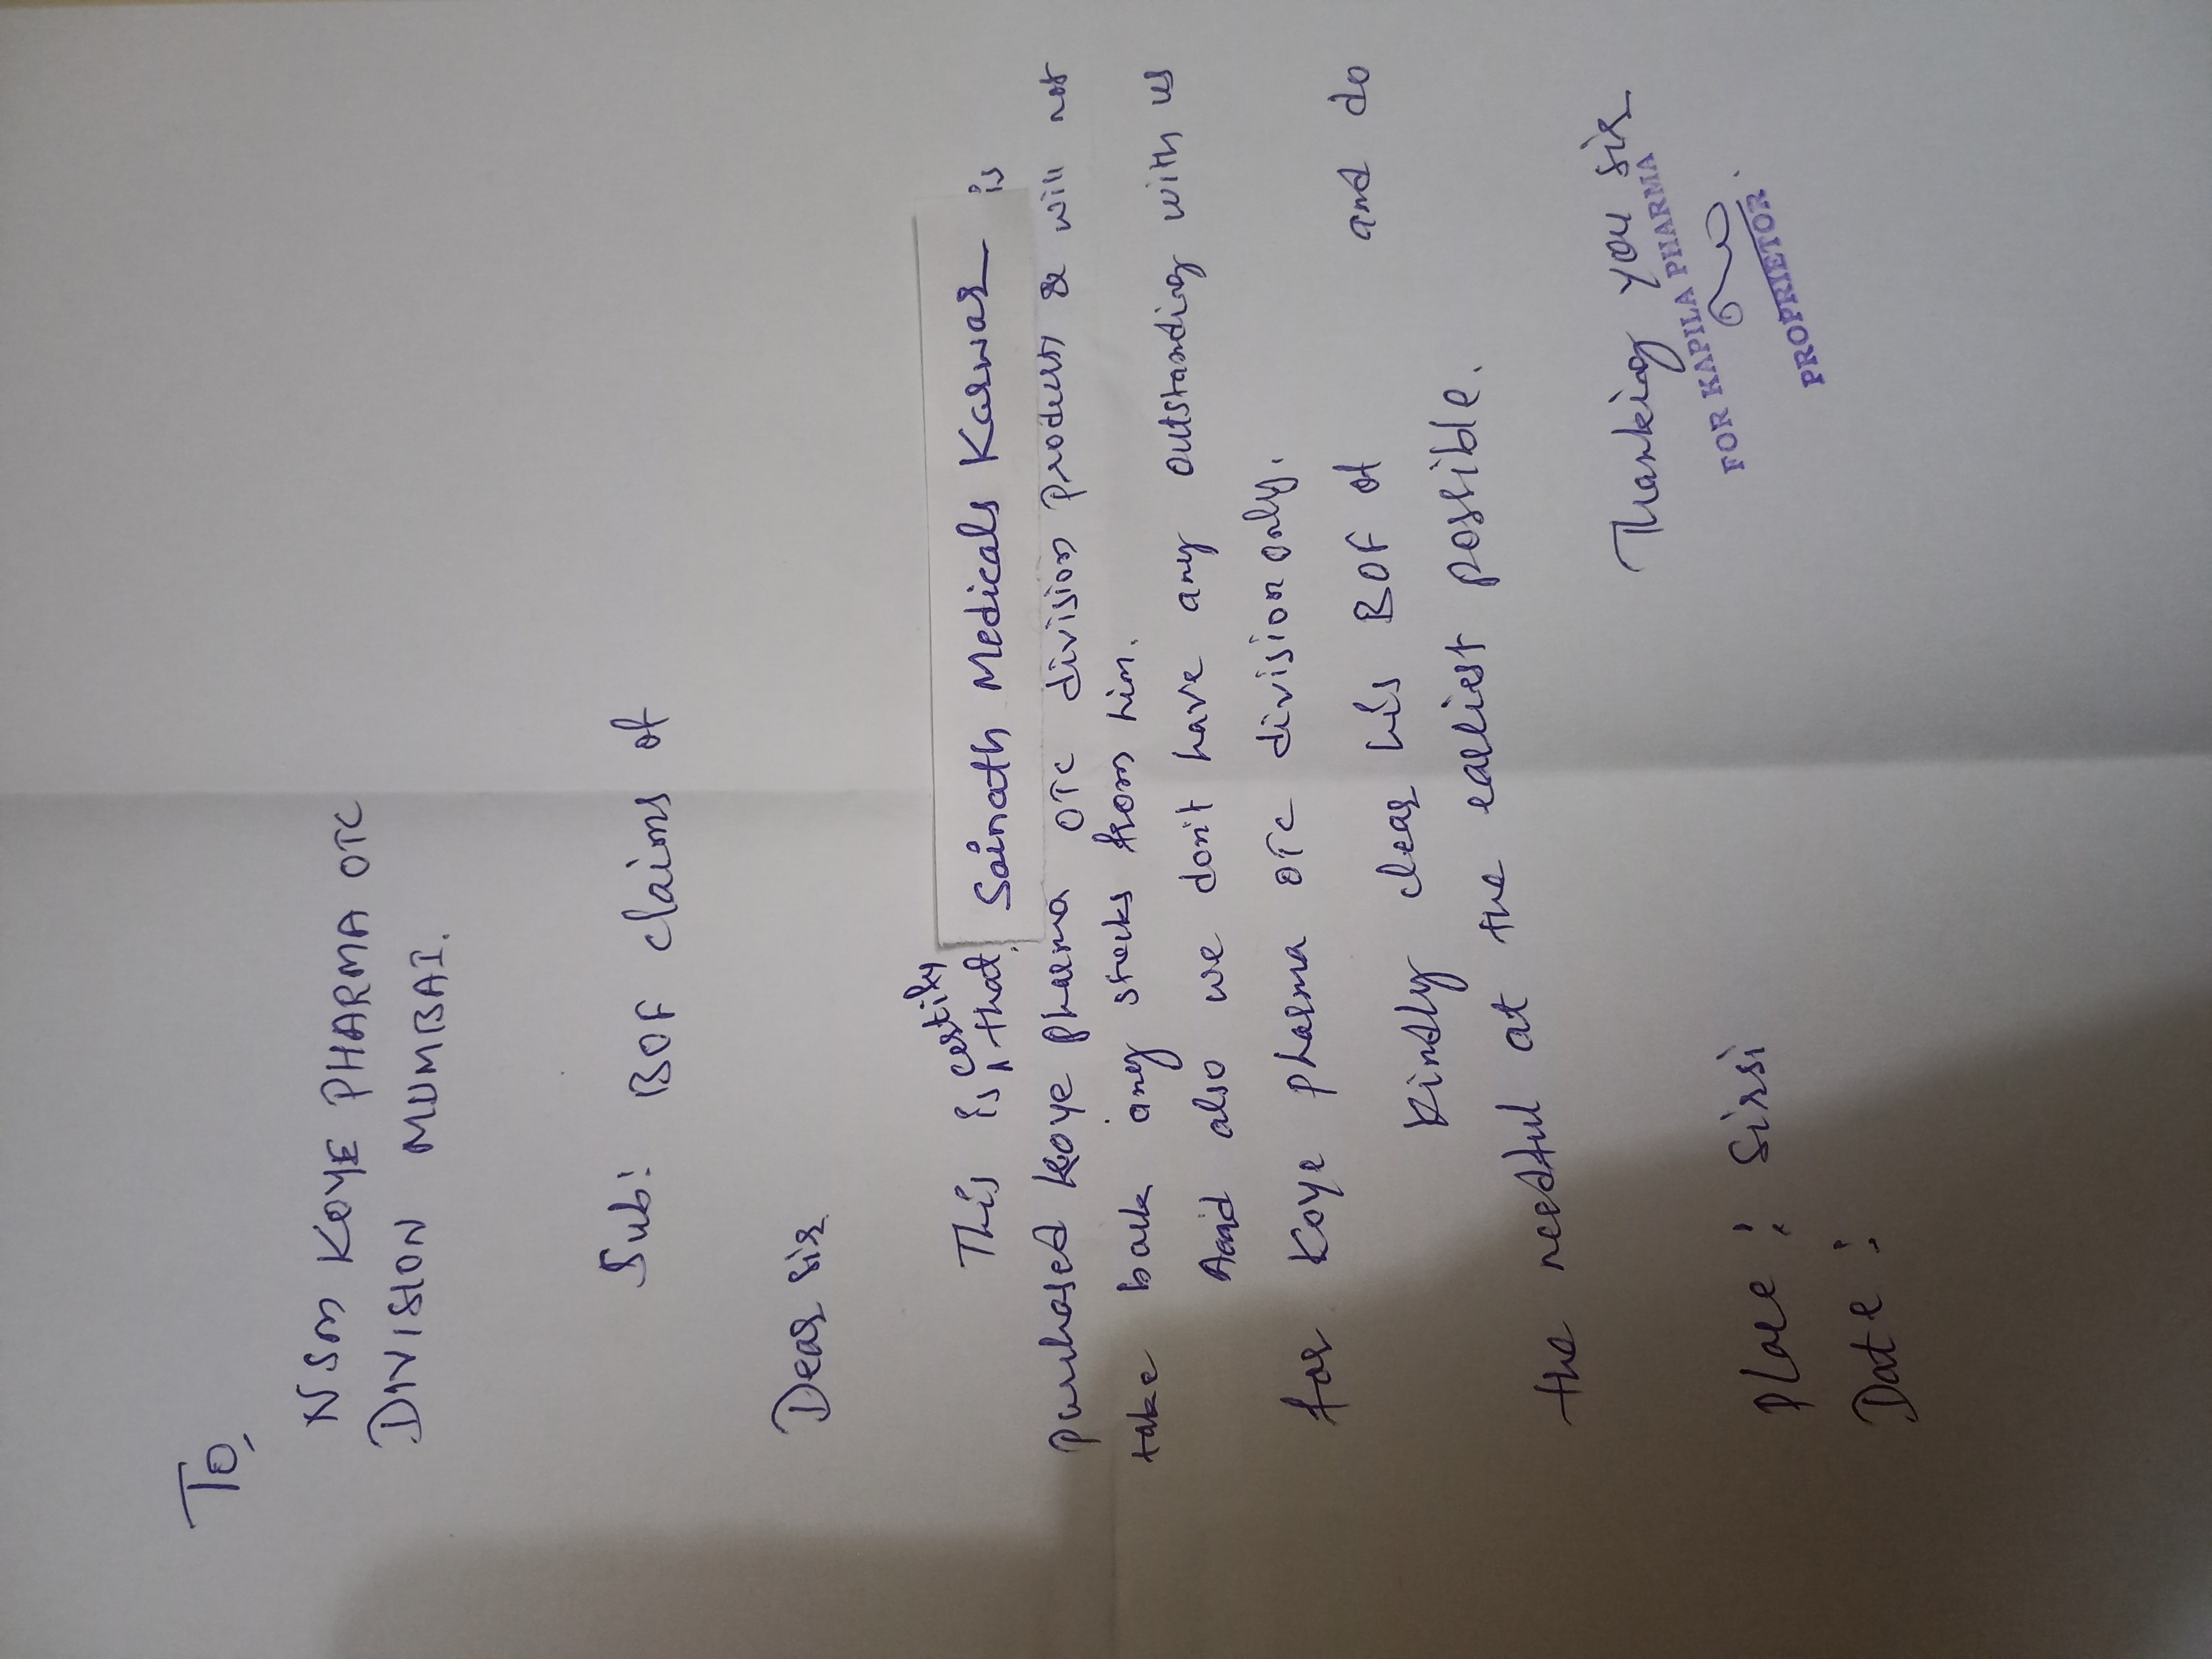 To,
NSM KOYE PHARMA OTC
DIVISION MUMBAI.
Sub: BOF claims of
Dear Sir
This is certify that Sainath Medicals Karwar is
purchased Koye pharma OTC division product & will not
take back any stocks from him.
And also we don't have any outstanding with us
for Koye pharma OTC division only.
Kindly clear his BOF of and do
the needful at the earliest possible.
Thanking you sir
FOR KAPILA PHARMA
PROPRIETOR
Place: Sirsi
Date: